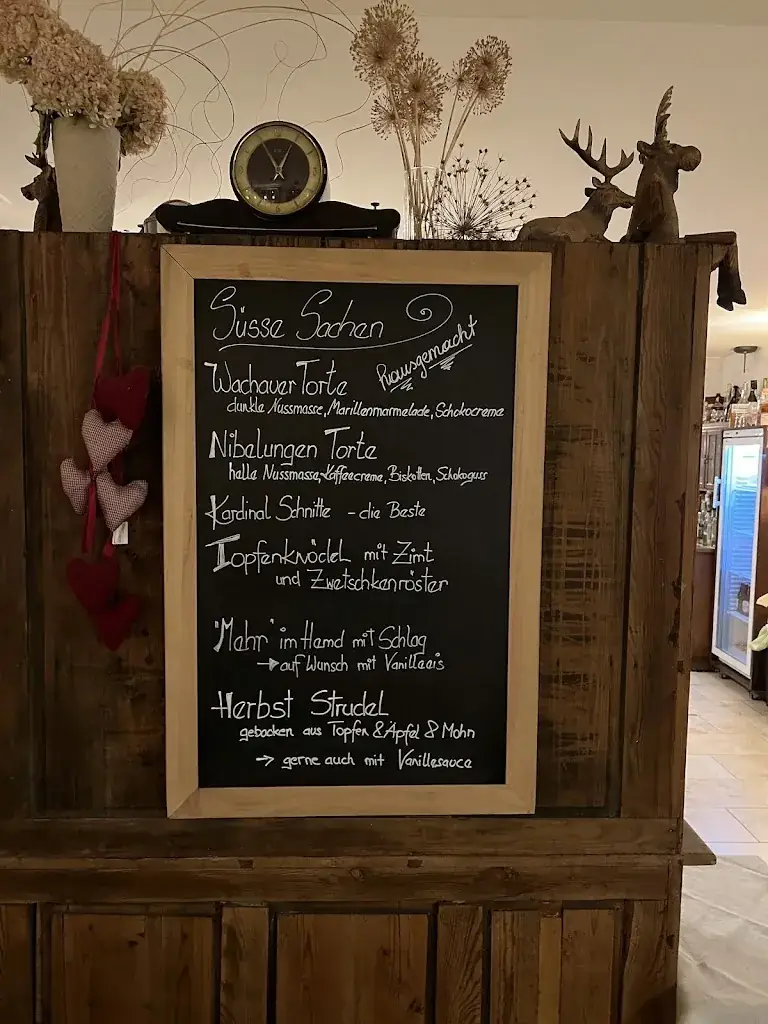 Süsse Sachen
Hausgemacht
Wachauer Torte
dunkle Nussmasse, Marillenmarmelade, Schokocreme
Nibelungen Torte
helle Nussmasse, Kaffeecreme, Biskotten, Schokoguss
Kardinal Schnitte - die Beste
Topfenknödel mit Zimt
und Zwetschkenröster
"Mohr" im Hemd mit Schlag
→ auf Wunsch mit Vanilleeis
Herbst Strudel
gebacken aus Topfen & Äpfel & Mohn
→ gerne auch mit Vanillesauce